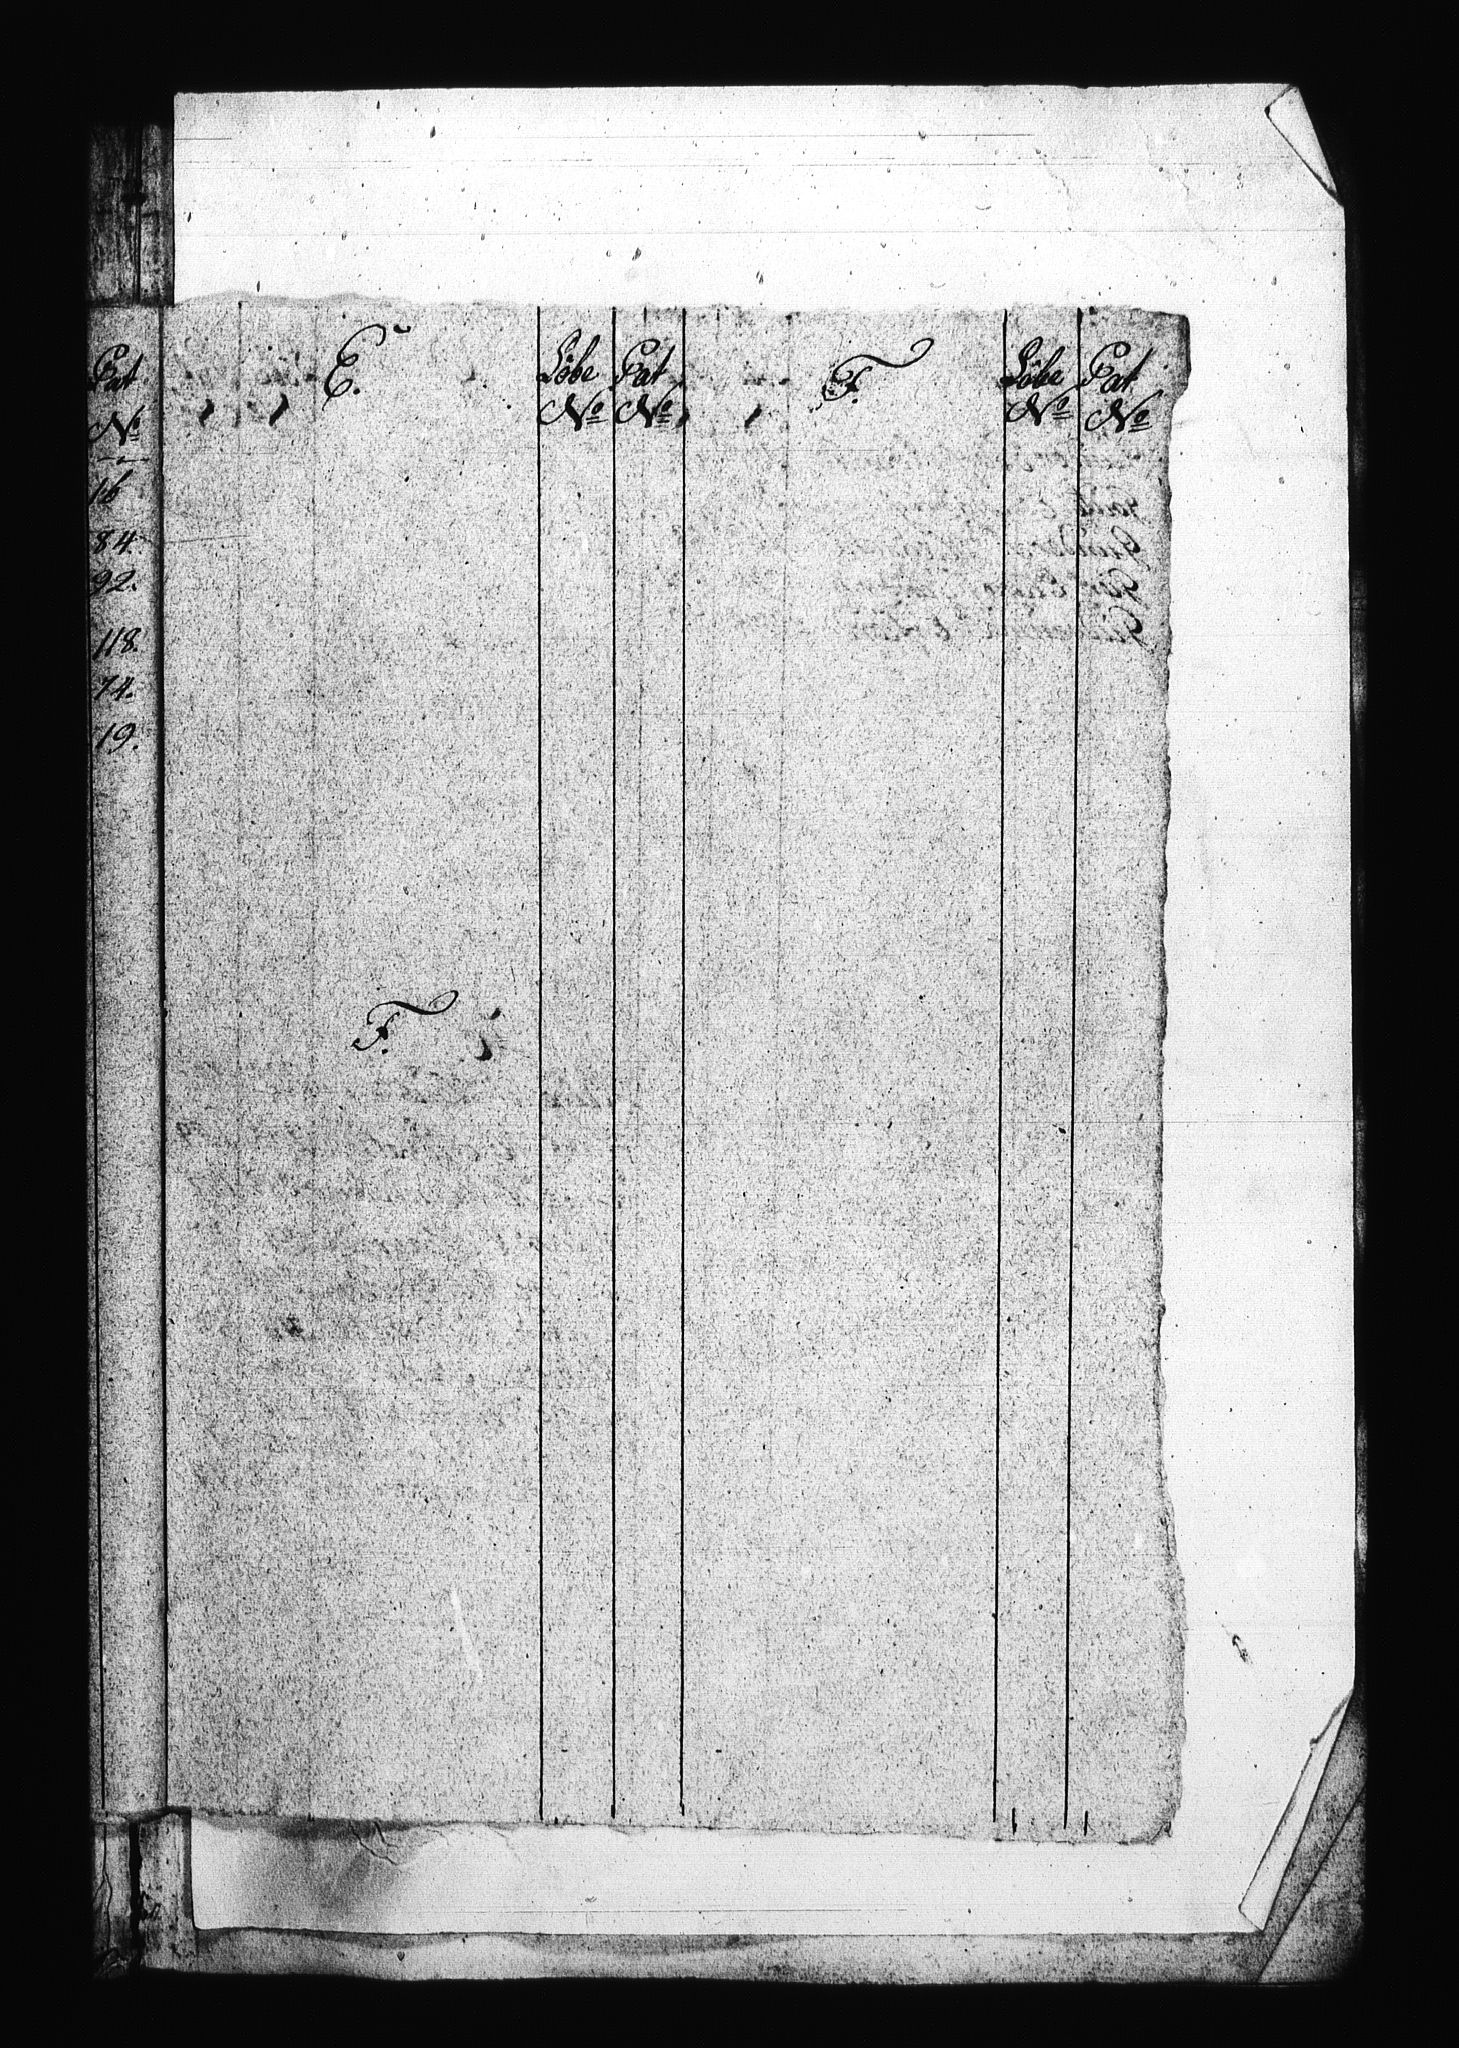 Pat
No
16
84.
92.
118.
74.
19.
E.
Löbe
No
Pat
No
F.
F.
Löbe
No
Pat
No